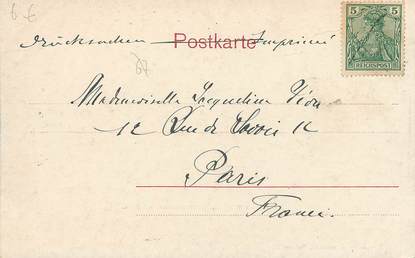 6 €
Drucksachen Postkarte Imprimé
5 5
REICHSPOST
Mademoiselle Jacqueline
12 Rue de Savoie 12
Paris
France.